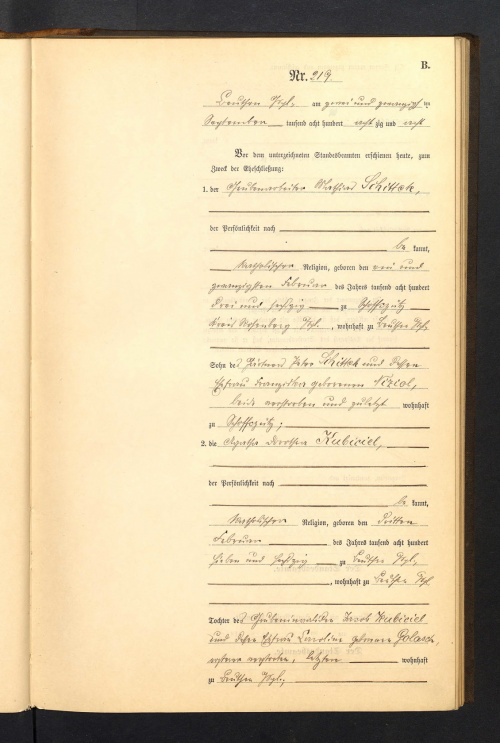 B.
Nr. 219.
Beuthen O/S., am zwei und zwanzigsten
September tausend acht hundert achtzig und acht
Vor dem unterzeichneten Standesbeamten erschienen heute, zum
Zweck der Eheschließung:
1. der Grubenarbeiter Mathias Schittek,
der Persönlichkeit nach
be kannt,
katholischer Religion, geboren den
zwanzigsten Februar des Jahres tausend acht hundert
drei und sechszig zu
Kreis Rosenberg O/S., wohnhaft zu Beuthen O/S.
Sohn des Peter Schittek und dessen
Ehefrau Franziska geborenen
beide verstorben und zuletzt wohnhaft
zu
2. die Agatha Dorothea Kubiciel,
der Persönlichkeit nach
be kannt,
katholischer Religion, geboren den dritten
Februar des Jahres tausend acht hundert
sieben und sechszig zu Beuthen O/S.,
, wohnhaft zu Beuthen O/S.
Tochter des Grubeninvaliden Jacob Kubiciel
und dessen Ehefrau Caroline geborene
ersterer verstorben, letztere wohnhaft
zu Beuthen O/S.,